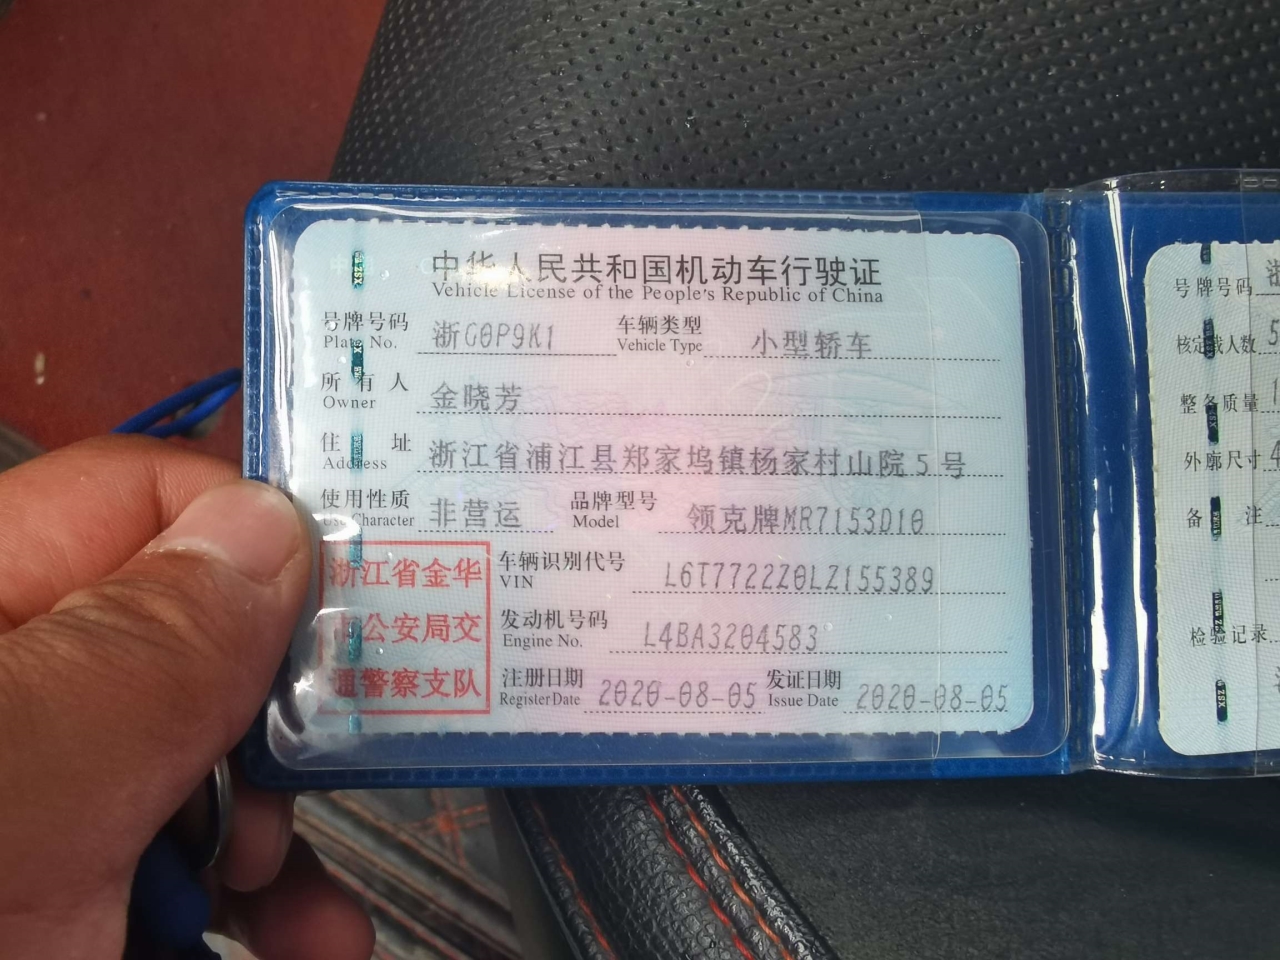 中华人民共和国机动车行驶证
Vehicle License of the People's Republic of China
号牌号码 浙G0P9K1 车辆类型 小型轿车
Plate No. Vehicle Type
所有人 金晓芳
Owner
住址 浙江省浦江县郑家坞镇杨家村山院5号
Address
使用性质 非营运 品牌型号 领克牌MR7153D10
Use Character Model
浙江省金华
市公安局交
通警察支队
车辆识别代号 L6T7722Z0LZ155389
VIN
发动机号码 L4BA3204583
Engine No.
注册日期 2020-08-05 发证日期 2020-08-05
Register Date Issue Date
号牌号码 浙
核定载人数 5
整备质量 1
外廓尺寸 4
备注
检验记录